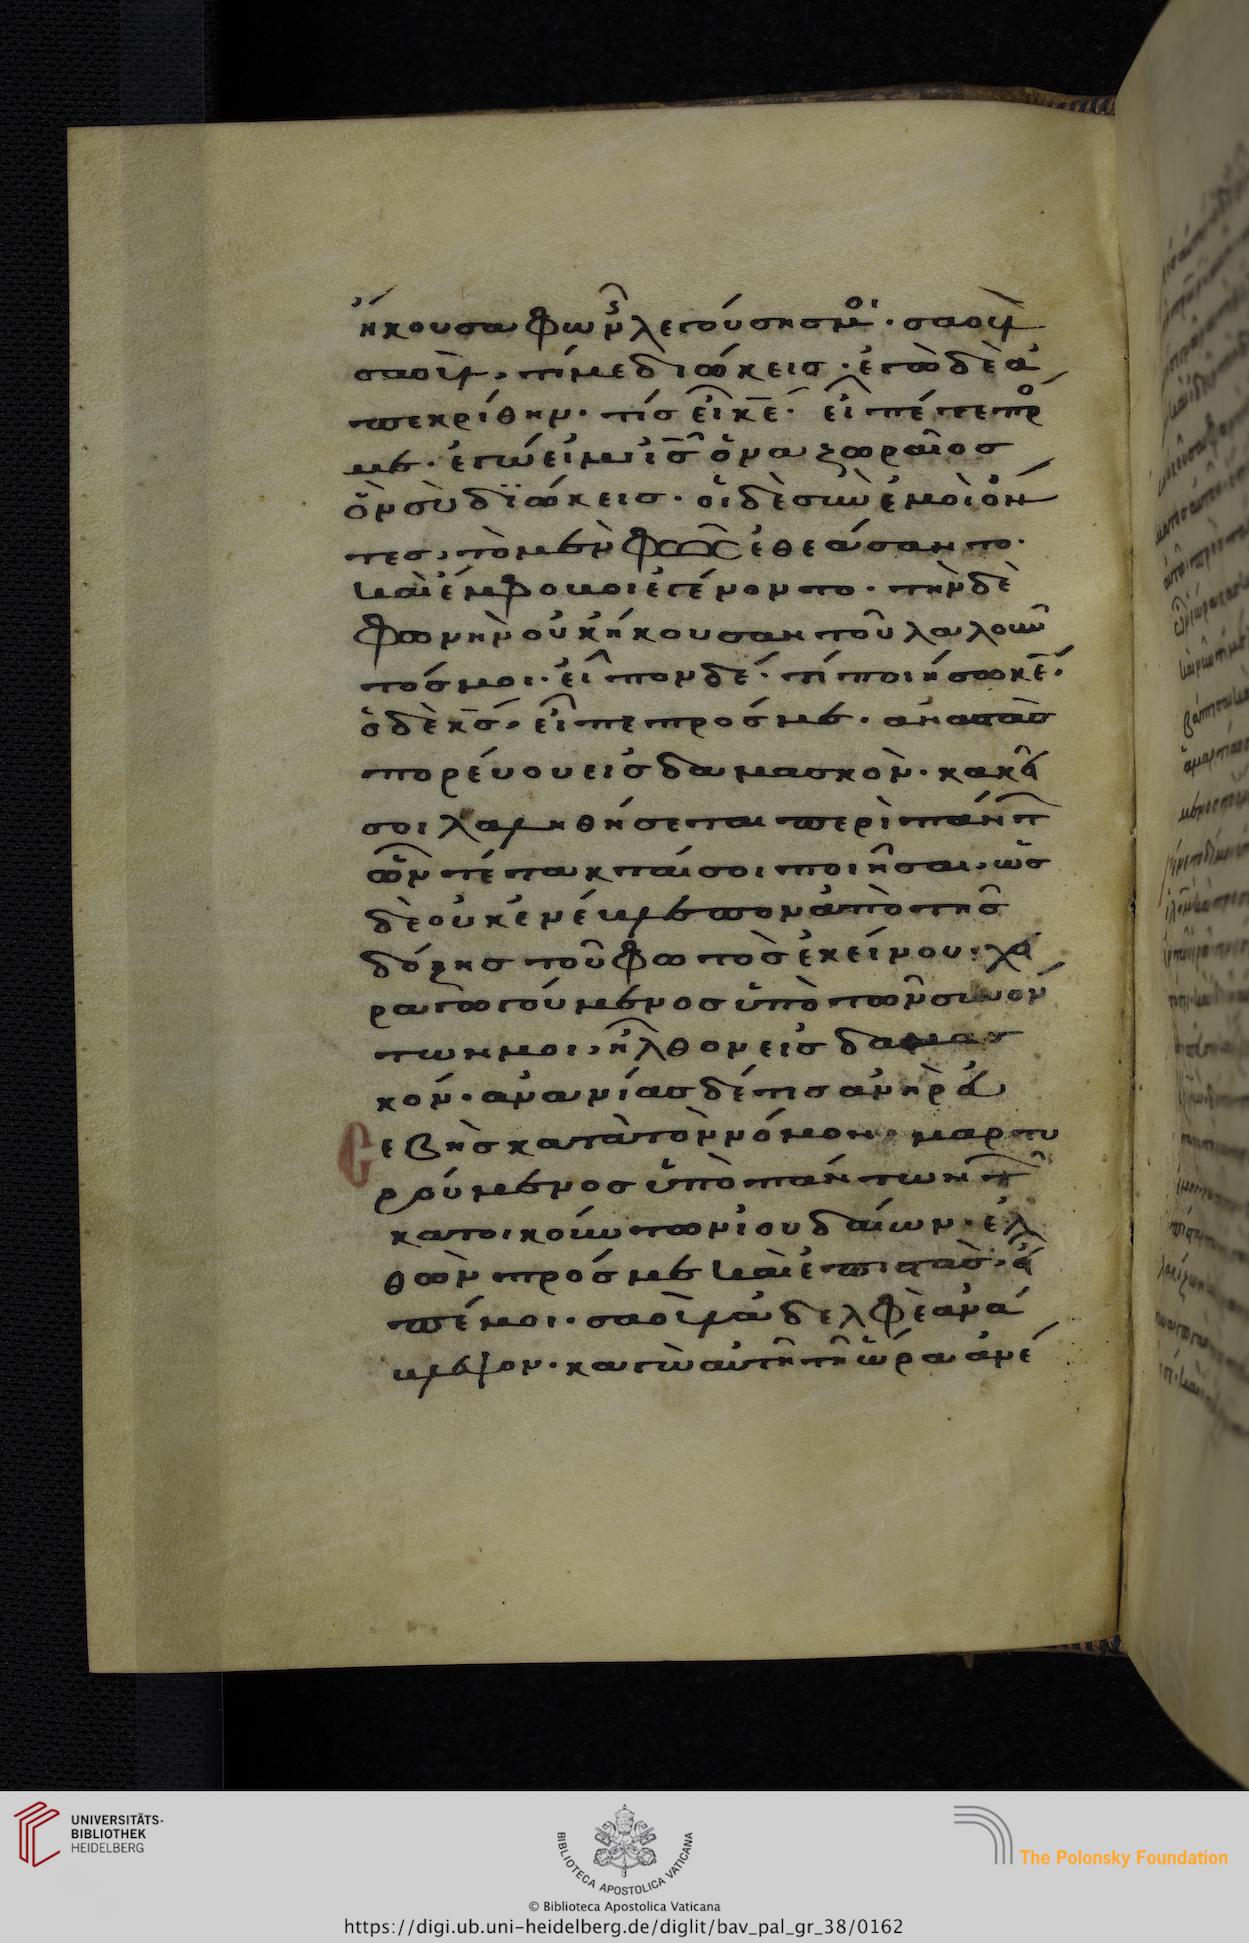 ἤκουσα φωνῆς λεγούσης μοι· σαοὺλ
σαοὺλ, τί με διώκεις· ἐγὼ δὲ ἀ
πεκρίθην· τίς εἶ κ̅ε̅· εἶπέ τε πρό
με· ἐγώ εἰμι ι̅ς̅ ὁ ναζωραῖος
ὃν σὺ διώκεις· οἱ δὲ σὺν ἐμοὶ ὄν
τες, τὸ μὲν φῶς ἐθεάσαντο·
καὶ ἔμφοβοι ἐγένοντο· τὴν δὲ
φωνὴν οὐκ ἤκουσαν τοῦ λαλοῦν
τός μοι· εἶπον δέ· τί ποιήσω κ̅ε̅·
ὁ δὲ κ̅ς̅, εἶπε πρός με· αναστὰς
πορέυου εις δαμασκὸν· κακεῖ
σοι λαληθήσεται περὶ πάντ
ὧν τέτακταί σοι ποιῆσαι, ὡς
δὲ οὐκ ἐνέβλεπον ἀπὸ τῆς
δόξης τοῦ φωτὸς ἐκείνου, χει
ραγωγούμενος ὑπὸ τῶν συνόν
των μοι, ἦλθον εις δαμας
κόν· ανανίας δέ τις ἀνὴρ ἐυ
σεβὴς κατὰ τὸν νόμον, μαρτυ
ρούμενος ὑπὸ πάντων τῶν
κατοικούντων ἰουδαίων· ἐλ
θὼν πρός με καὶ ἐπιστὰς, εἶ
πέ μοι· σαοὺλ ἀδελφὲ ἀνά
βλεψον· καγὼ αὐτῆ τῆ ὥρα ἀνέ
UNIVERSITÄTS-
BIBLIOTHEK
HEIDELBERG
BIBLIOTECA APOSTOLICA VATICANA
The Polonsky Foundation
© Biblioteca Apostolica Vaticana
https://digi.ub.uni-heidelberg.de/diglit/bav_pal_gr_38/0162